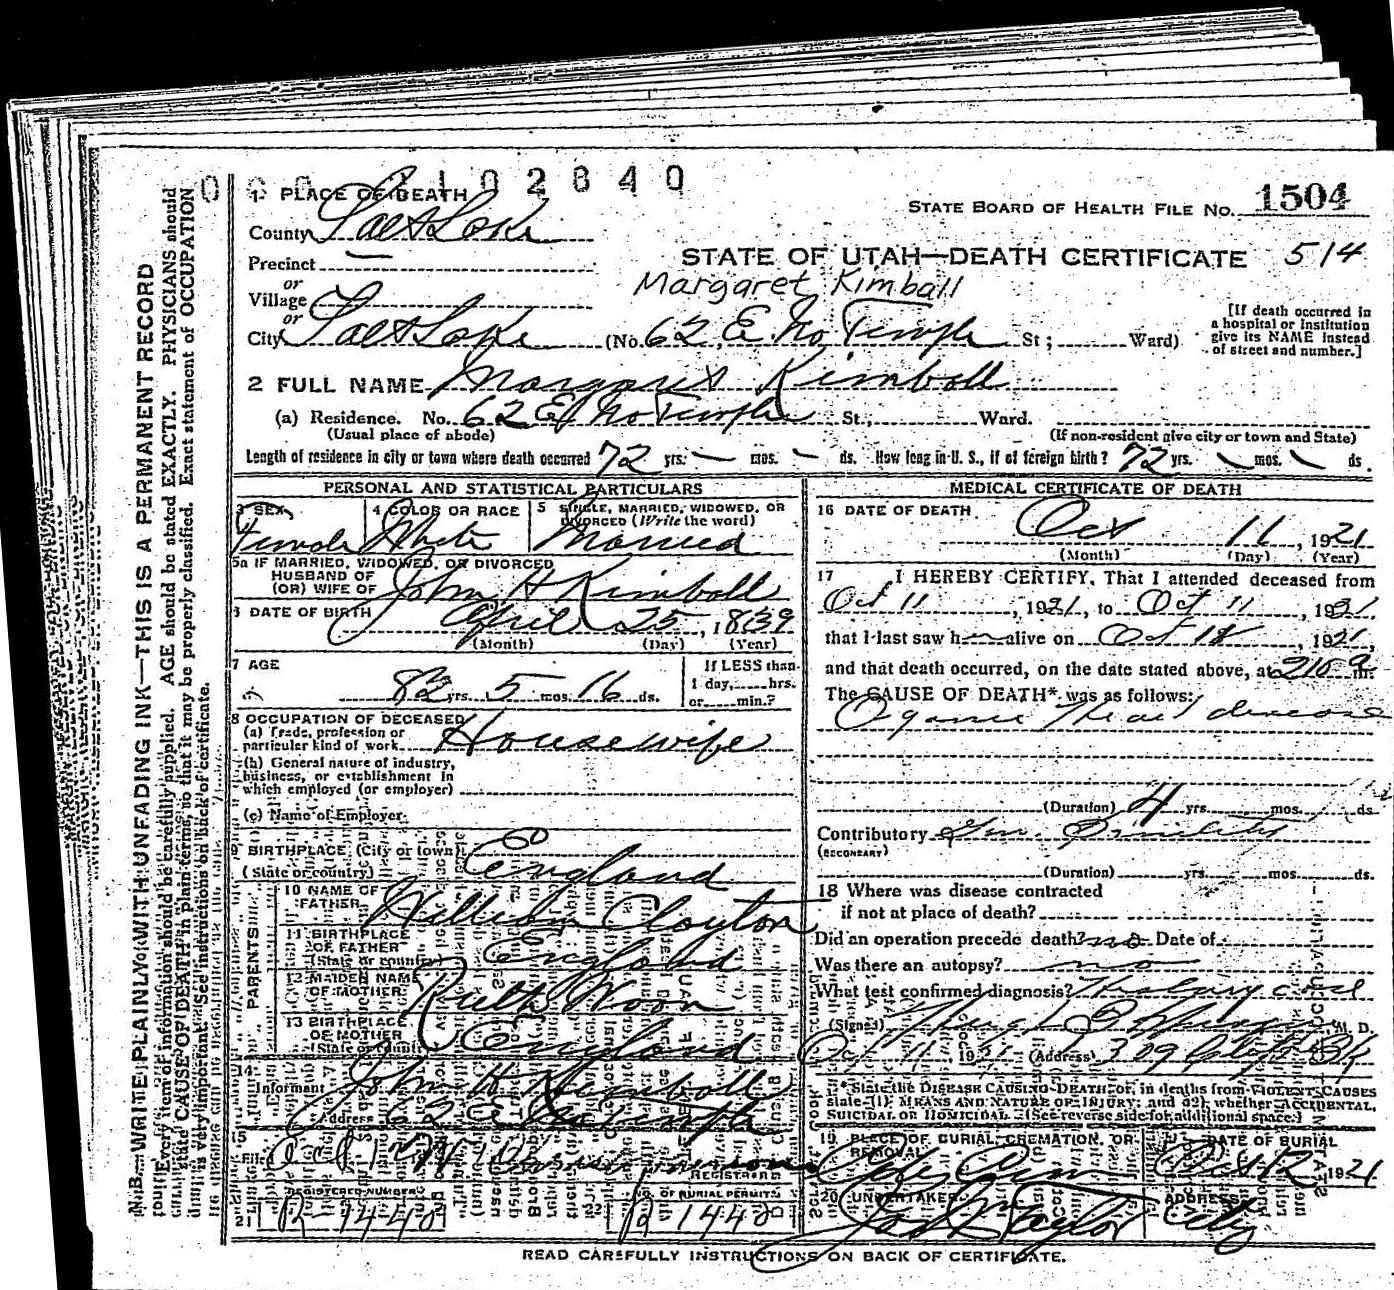 0 0 0 1 0 2 8 4 0
1 PLACE OF DEATH
STATE BOARD OF HEALTH FILE NO. 1504
County Salt Lake
STATE OF UTAH—DEATH CERTIFICATE 514
Precinct —
Margaret Kimball
or
Village
or
City Salt Lake (No. 62 E No Temple St; Ward)
[If death occurred in
a hospital or institution
give its NAME instead
of street and number.]
2 FULL NAME Margaret Kimball
(a) Residence. No. 62 E No Temple St., Ward.
(Usual place of abode) (If non-resident give city or town and State)
Length of residence in city or town where death occurred 72 yrs. — mos. - ds. How long in U. S., if of foreign birth? 72 yrs. mos. ds.
PERSONAL AND STATISTICAL PARTICULARS
3 SEX 4 COLOR OR RACE 5 SINGLE, MARRIED, WIDOWED, OR
DIVORCED (Write the word)
Female White Married
5a IF MARRIED, WIDOWED, OR DIVORCED
HUSBAND OF
(OR) WIFE OF John H Kimball
6 DATE OF BIRTH April 25, 1839
(Month) (Day) (Year)
7 AGE If LESS than
82 yrs. 5 mos. 16 ds. 1 day, hrs.
or min.?
8 OCCUPATION OF DECEASED
(a) Trade, profession or
particular kind of work Housewife
(b) General nature of industry,
business, or establishment in
which employed (or employer)
(c) Name of Employer
9 BIRTHPLACE (City or town)
(State or country) England
PARENTS
10 NAME OF
FATHER William Clayton
11 BIRTHPLACE
OF FATHER
(State or country) England
12 MAIDEN NAME
OF MOTHER Ruth Moon
13 BIRTHPLACE
OF MOTHER
(State or country) England
14
Informant John H Kimball
Address 62 E No Temple
15
Filed Oct
REGISTRAR
REGISTERED NUMBER NO. OF BURIAL PERMIT
B 1440 B 1440
MEDICAL CERTIFICATE OF DEATH
16 DATE OF DEATH Oct 11, 1921
(Month) (Day) (Year)
17 I HEREBY CERTIFY, That I attended deceased from
Oct 11, 1921, to Oct 11, 1921
that I last saw h alive on Oct, 1921,
and that death occurred, on the date stated above, at 210 a m.
The CAUSE OF DEATH* was as follows:
Organic Heart disease
(Duration) 4 yrs. mos. ds
Contributory Gen Senility
(SECONDARY)
(Duration) yrs. mos. ds.
18 Where was disease contracted
if not at place of death?
Did an operation precede death? no Date of
Was there an autopsy? no
What test confirmed diagnosis?
(Signed) M. D.
Oct 11, 1921 (Address) 309
*State the DISEASE CAUSING DEATH, or, in deaths from VIOLENT CAUSES
state (1) MEANS AND NATURE OF INJURY; and (2) whether ACCIDENTAL,
SUICIDAL OR HOMICIDAL. (See reverse side for additional space.)
19 PLACE OF BURIAL, CREMATION, OR
REMOVAL DATE OF BURIAL
City Cem Oct 12 1921
20 UNDERTAKER ADDRESS
Taylor City
READ CAREFULLY INSTRUCTIONS ON BACK OF CERTIFICATE.
N. B.—WRITE PLAINLY WITH UNFADING INK—THIS IS A PERMANENT RECORD
Every item of information should be carefully supplied. AGE should be stated EXACTLY. PHYSICIANS should
state CAUSE OF DEATH in plain terms, so that it may be properly classified. Exact statement of OCCUPATION
is very important. See instructions on back of certificate.